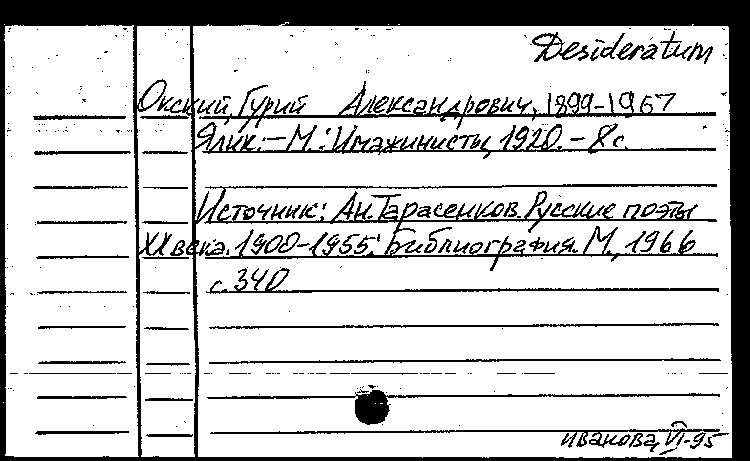 Desideratum
Окский, Гурий Александрович, 1899-1967
Ялик. – М.: Имажинисты, 1920. – 8 с.
Источник: Ан. Тарасенков. Русские поэты
XX века. 1900-1955. Библиография. М., 1966
с. 340
Иванова, VI-95